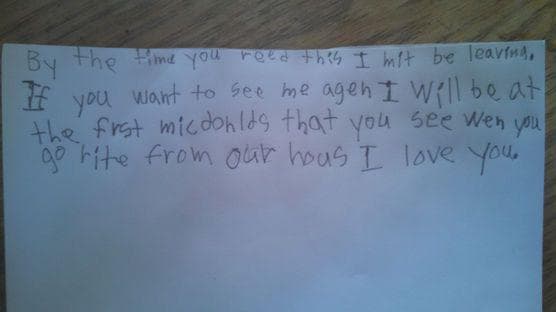 By the time you reed this I mit be leaving.
If you want to see me agen I will be at
the frst micdonlds that you see wen you
go rite from our hous I love you.